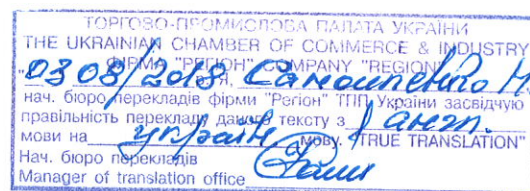 ТОРГОВО-ПРОМИСЛОВА ПАЛАТА УКРАЇНИ
THE UKRAINIAN CHAMBER OF COMMERCE & INDUSTRY
ФІРМА "РЕГІОН" COMPANY "REGION"
"03 08/2018 Я, Самойленко Н.
нач. бюро перекладів фірми "Регіон" ТПП України засвідчую
правильність перекладу даного тексту з англ.
мови на україн. мову. "TRUE TRANSLATION"
Нач. бюро перекладів
Manager of translation office